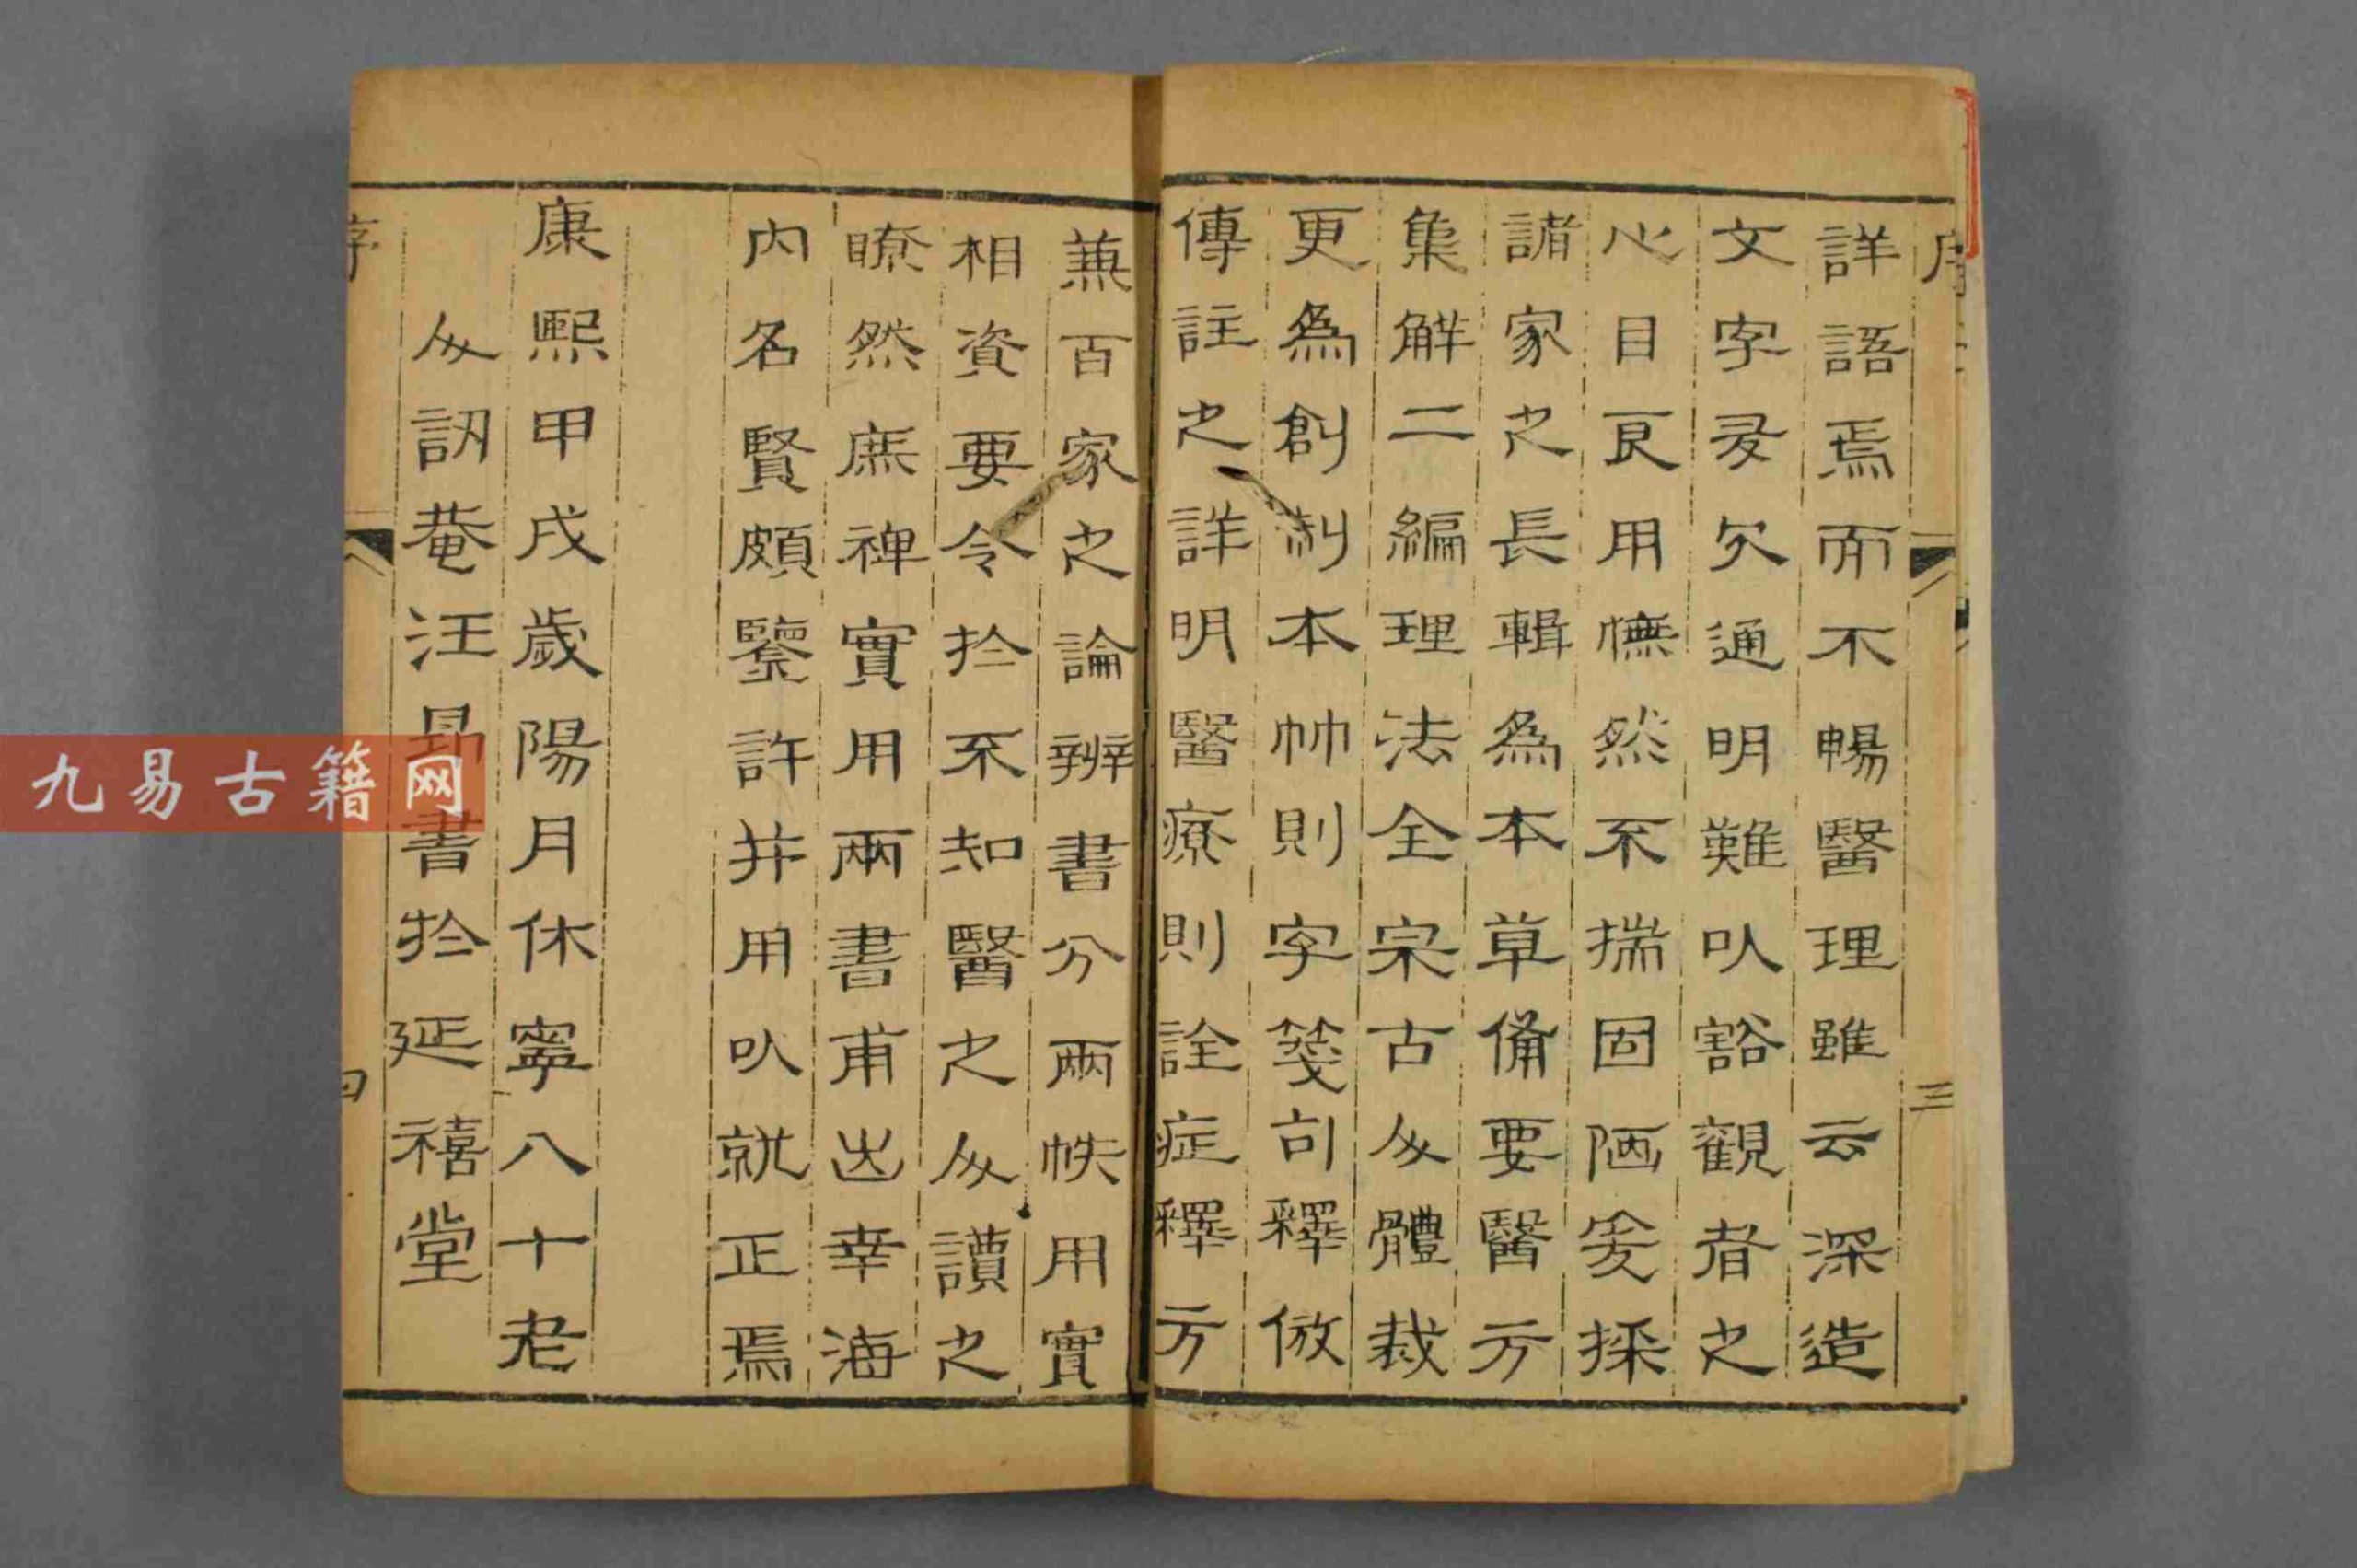 詳語焉而不暢醫理雖云深造
文字叐欠通明難㕥豁觀者之
心目良用憮然不揣固陋爰採
諸家之長輯為本草備要醫方
集解二編理法全宗古人體裁
更為創制本帥則字箋句釋倣
傳註之詳明醫療則詮症釋方
兼百家之論辨書分兩帙用實
相資要令扵不知醫之人讀之
瞭然庶裨實用兩書甫出幸海
內名賢頗鑒許井用㕥就正焉
康熙甲戌歲陽月休寧八十老
人訒菴汪昂書扵延禧堂
序
三
四
九易古籍网